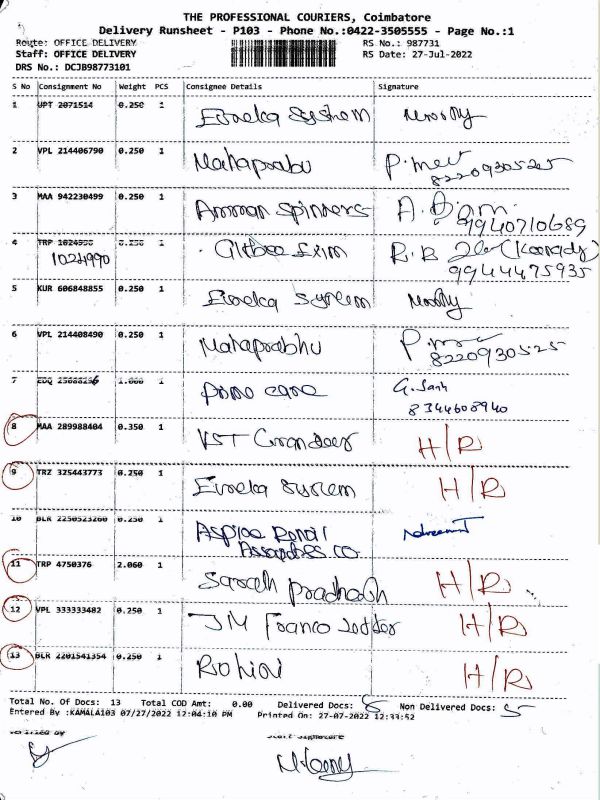 THE PROFESSIONAL COURIERS, Coimbatore
Delivery Runsheet - P103 - Phone No.:0422-3505555 - Page No.:1
Route: OFFICE DELIVERY RS No.: 987731
Staff: OFFICE DELIVERY RS Date: 27-Jul-2022
DRS No.: DCJB98773101
S No Consignment No Weight PCS Consignee Details Signature
1 UPT 2071514 0.250 1 Eureka System
2 VPL 214406790 0.250 1 Mahaprabu
8220930525
3 MAA 942230499 0.250 1 Amman Spinners
9940710689
4 TRP 1024990 0.250 1 Exim
1024990 9944475935
5 KUR 606848855 0.250 1 Eureka System
6 VPL 214408490 0.250 1 Mahaprabhu
8220930525
7 1.000 1 care
8344608940
8 MAA 289988404 0.350 1 VST H/R
9 TRZ 325443773 0.250 1 Eureka System H/R
10 BLR 2250523260 0.250 1
11 TRP 4750376 2.060 1 H/R
12 VPL 333333482 0.250 1 JM H/R
13 BLR 2201541354 0.250 1 Rohini H/R
Total No. Of Docs: 13 Total COD Amt: 0.00 Delivered Docs: 8 Non Delivered Docs: 5
Entered By :KAMALA103 07/27/2022 12:04:10 PM Printed On: 27-07-2022 12:33:52
Verified By Staff Signature